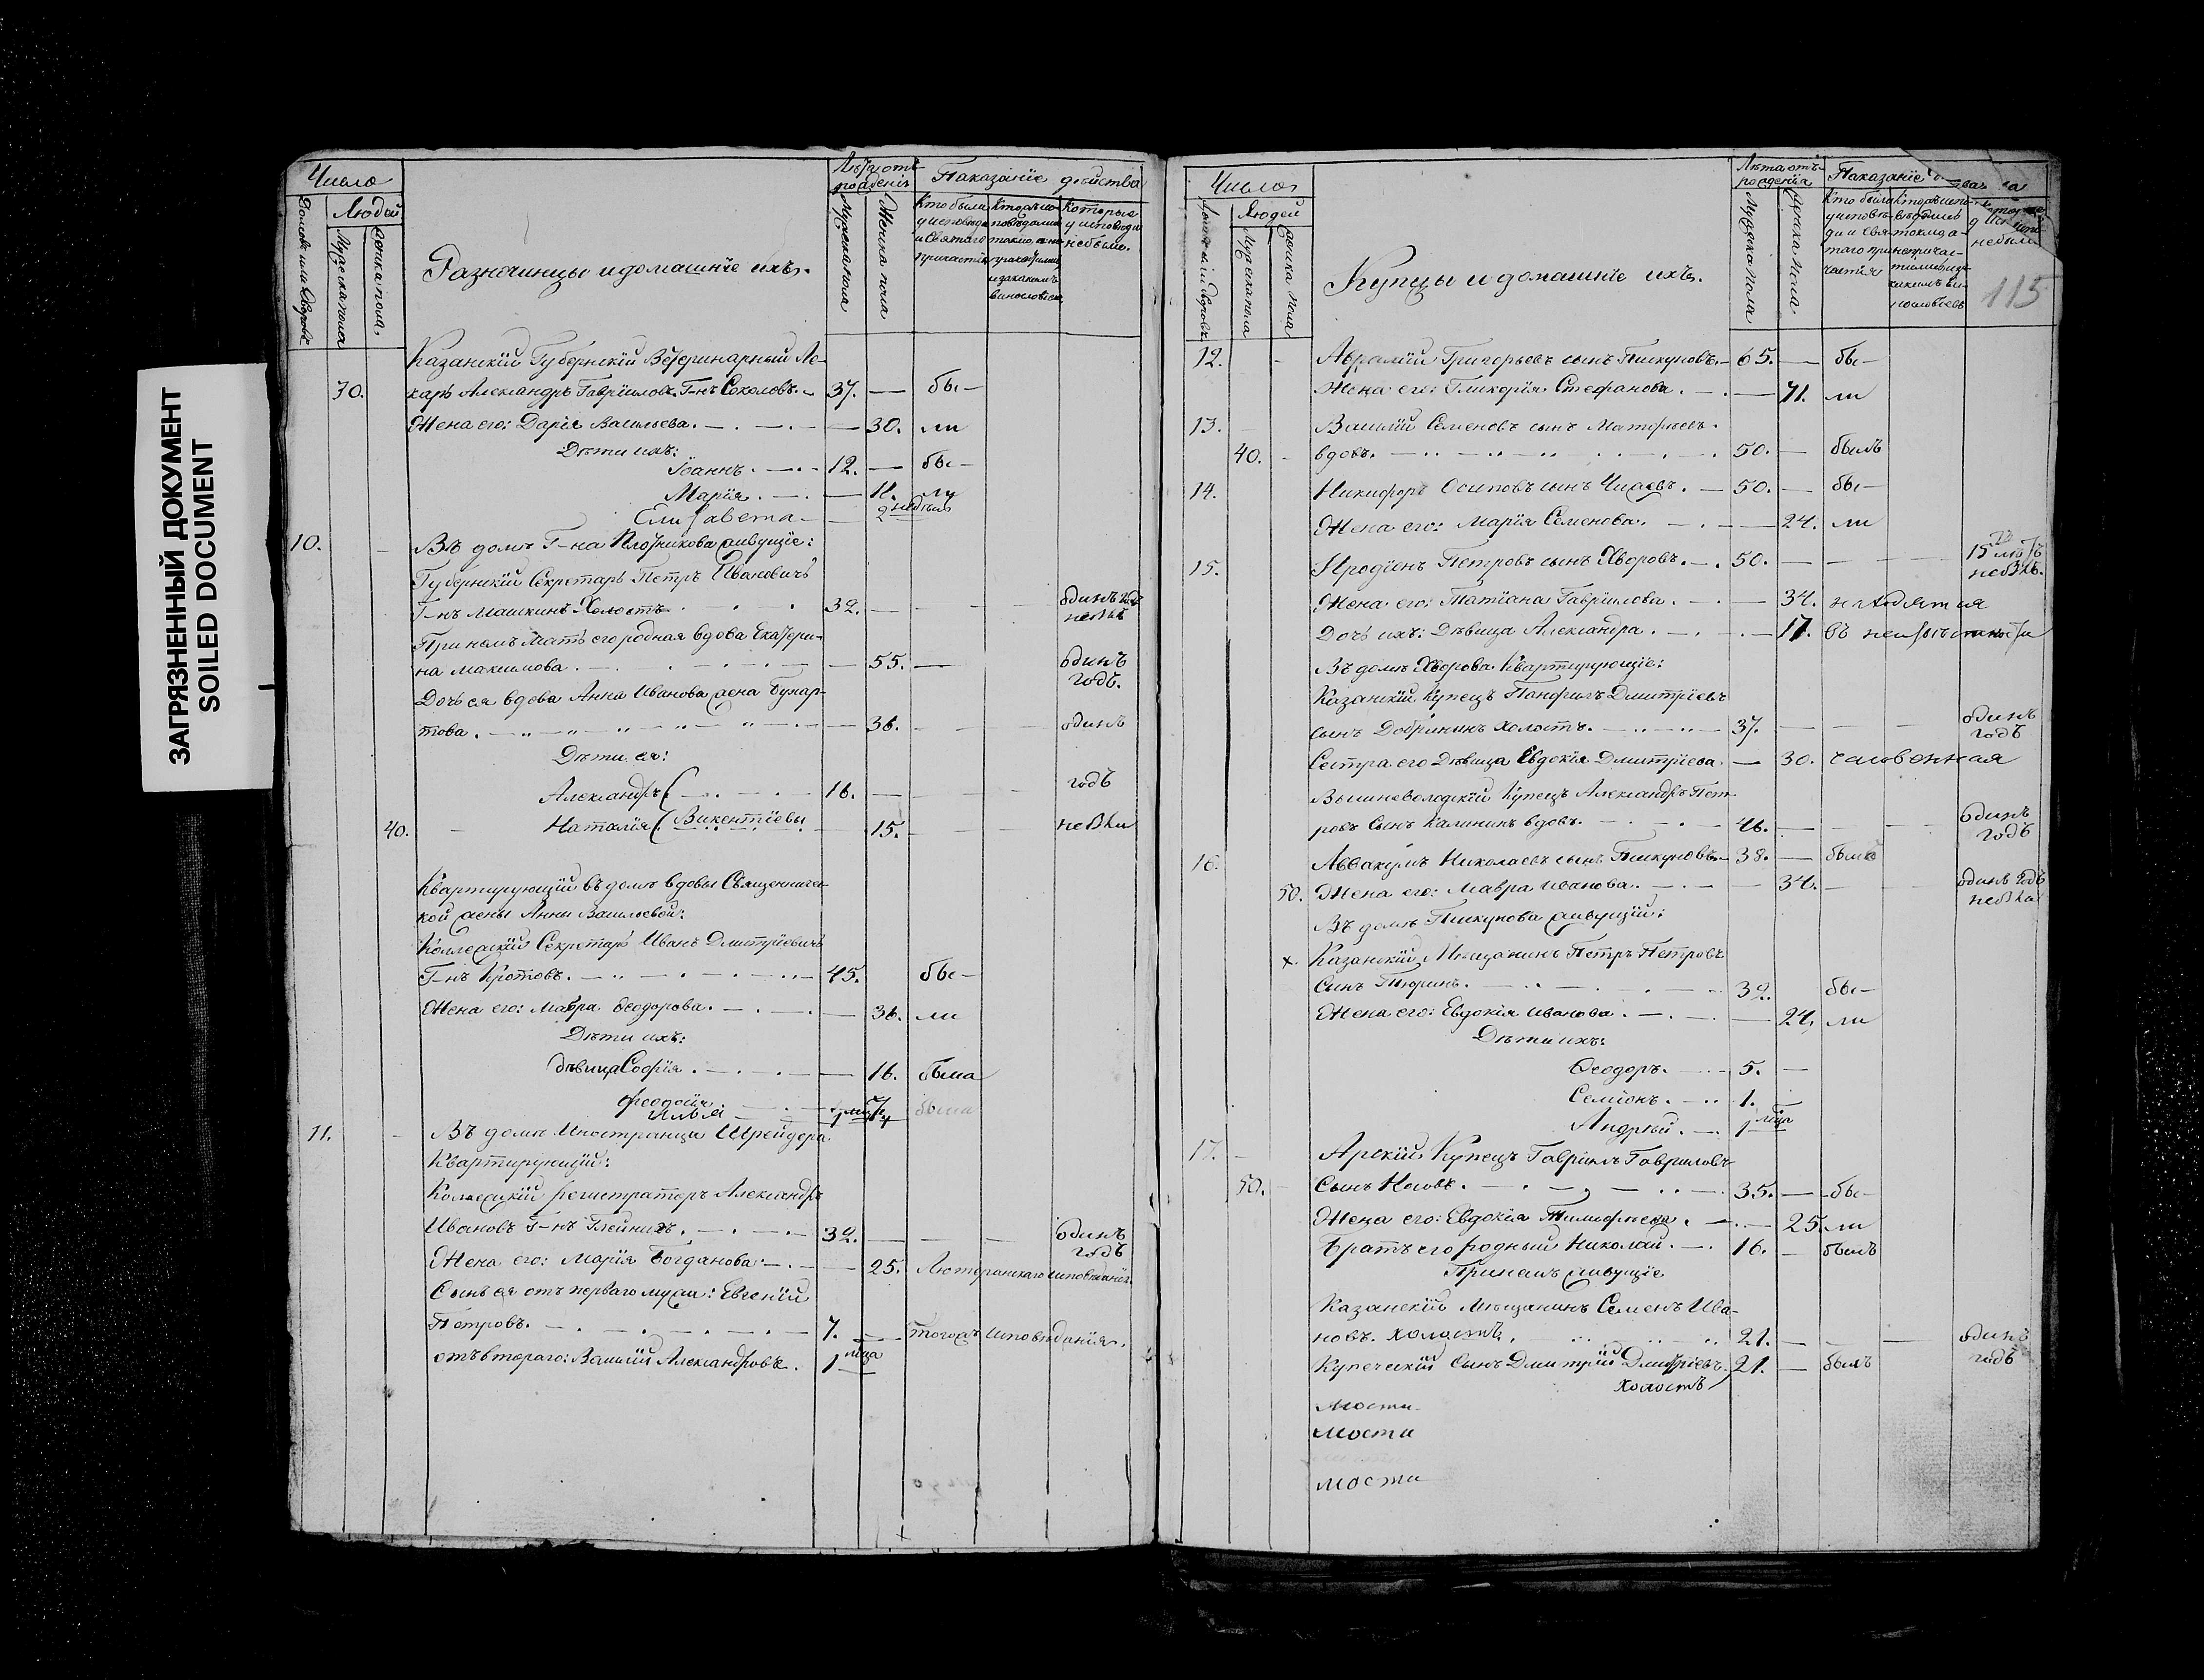 ЗАГРЯЗНЕННЫЙ ДОКУМЕНТ
SOILED DOCUMENT
Число
Людей
Домовъ или Дворовъ
Мужеска пола
Женска пола
Разночинцы и домашніе ихъ.
Лѣта отъ рожденія
Мужеска пола
Женска пола
Показаніе дѣйства
Кто были у исповѣди и Святаго причастія
Которые у исповѣди не были.
Казанскій Губернскій Ветеринарный Ле-
30. карь Александръ Гавріиловъ Г-нъ Соколовъ. 37. — бы-
Жена его: Дарія Васильева. — 30. ли
Дѣти ихъ:
Іоаннъ. 12. — бы-
Марія. — 11. ли
Елисавета — 2 недѣль
10. Въ домѣ Г-на Плотникова живущіе:
Губернскій Секретарь Петръ Ивановичь
Г-нъ Машкинъ Холостъ 32. — одинъ годъ
При немъ Мать его родная вдова Екатери-
на Максимова. — 55. — одинъ годъ.
Дочь ея вдова Анна Иванова жена
това. — 36. — одинъ
Дѣти ея:
Александръ 16. — годъ
40. Наталія Викентіевы 15.
Квартирующій въ домѣ вдовы Священничес-
кой жены Анны Васильевой:
Коллежскій Секретарь Иванъ Дмитріевичь
Г-нъ Кротовъ. 45. бы-
Жена его: Мавра Ѳеодорова. — 36. ли
Дѣти ихъ:
дѣвица Софія. — 16. была
Феодосія была
Илья
11. Въ домѣ Иностранца Шрейдера
Квартирующій:
Коллежскій регистраторъ Александръ
Ивановъ Г-нъ 32. — одинъ годъ
Жена его: Марія Богданова — 25. Лютеранскаго исповѣданія.
Сынъ ея отъ перваго мужа: Евгеній
Петровъ. 7. — тогожъ исповѣданія.
отъ втораго: Василій Александровъ. 1 мца
Число
Людей
Мужеска пола
Женска пола
Купцы и домашніе ихъ.
Лѣта отъ рожденія
Мужеска пола
Женска пола
Показаніе
115
12. Авраамій Григорьевъ сынъ Пискуновъ. 65. — бы-
Жена его: Гликерія Стефанова. — 71. ли
13. Василій Семеновъ сынъ
40. вдовъ. 50. — былъ
14. Никифоръ Осиповъ сынъ 50. — бы-
Жена его: Марія Семенова. — 24. ли
15. Иродіонъ Петровъ сынъ Хворовъ. 50. — 15 лѣтъ
Жена его: Татіана Гавріилова. — 34. находятся
Дочь ихъ: Дѣвица Александра. — 17. въ неизвѣстности
Въ домѣ Хворова Квартирующіе:
Казанскій Купецъ Панфилъ Дмитріевъ
сынъ Добрининъ холостъ. 37. — одинъ годъ
Сестра его Дѣвица Евдокія Дмитріева. — 30. часовенная
Вышневолодскій Купецъ Александръ Пет-
ровъ Сынъ Калининъ вдовъ. 46. — одинъ годъ
16. Аввакумъ Николаевъ сынъ Пискуновъ. 38. — былъ
50. Жена его: Мавра Иванова. — 34. — одинъ годъ
Въ домѣ Пискунова живущій:
х. Казанскій Мѣщанинъ Петръ Петровъ
Сынъ Тюринъ. 32. бы-
Жена его: Евдокія Иванова. — 24. ли
Дѣти ихъ:
Ѳеодоръ. 5. —
Семіонъ. 1.
Андрей. 1 мца
17. Арскій Купецъ Гавріилъ Гавриловъ
50. Сынъ Носовъ. 35. — бы-
Жена его: Евдокія Тимофеева. — 25. ли
Братъ его родный Николай. 16. — былъ
При немъ живущіе
Казанскій Мѣщанинъ Семенъ Ива-
новъ. холостъ. 21. — одинъ годъ
Купеческій Сынъ Дмитрій Дмитріевъ. 21. — былъ
холостъ
мости
мости
мости